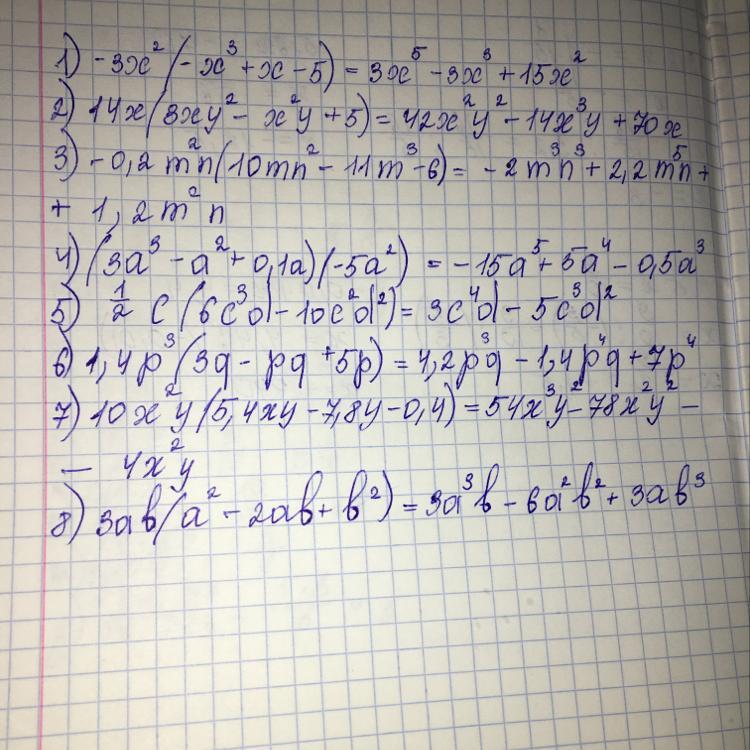 1) -3x²(-x³+x-5)=3x⁵-3x³+15x²
2) 14x(3xy²-x²y+5)=42x²y²-14x³y+70x
3) -0,2m²n(10mn²-11m³-6)=-2m³n³+2,2m⁵n+
+ 1,2m²n
4) (3a³-a²+0,1a)(-5a²)=-15a⁵+5a⁴-0,5a³
5) 1/2 c(6c³d-10c²d²)=3c⁴d-5c³d²
6) 1,4p³(3q-pq+5p)=4,2p³q-1,4p⁴q+7p⁴
7) 10x²y(5,4xy-7,8y-0,4)=54x³y²-78x²y²-
- 4x²y
8) 3ab(a²-2ab+b²)=3a³b-6a²b²+3ab³